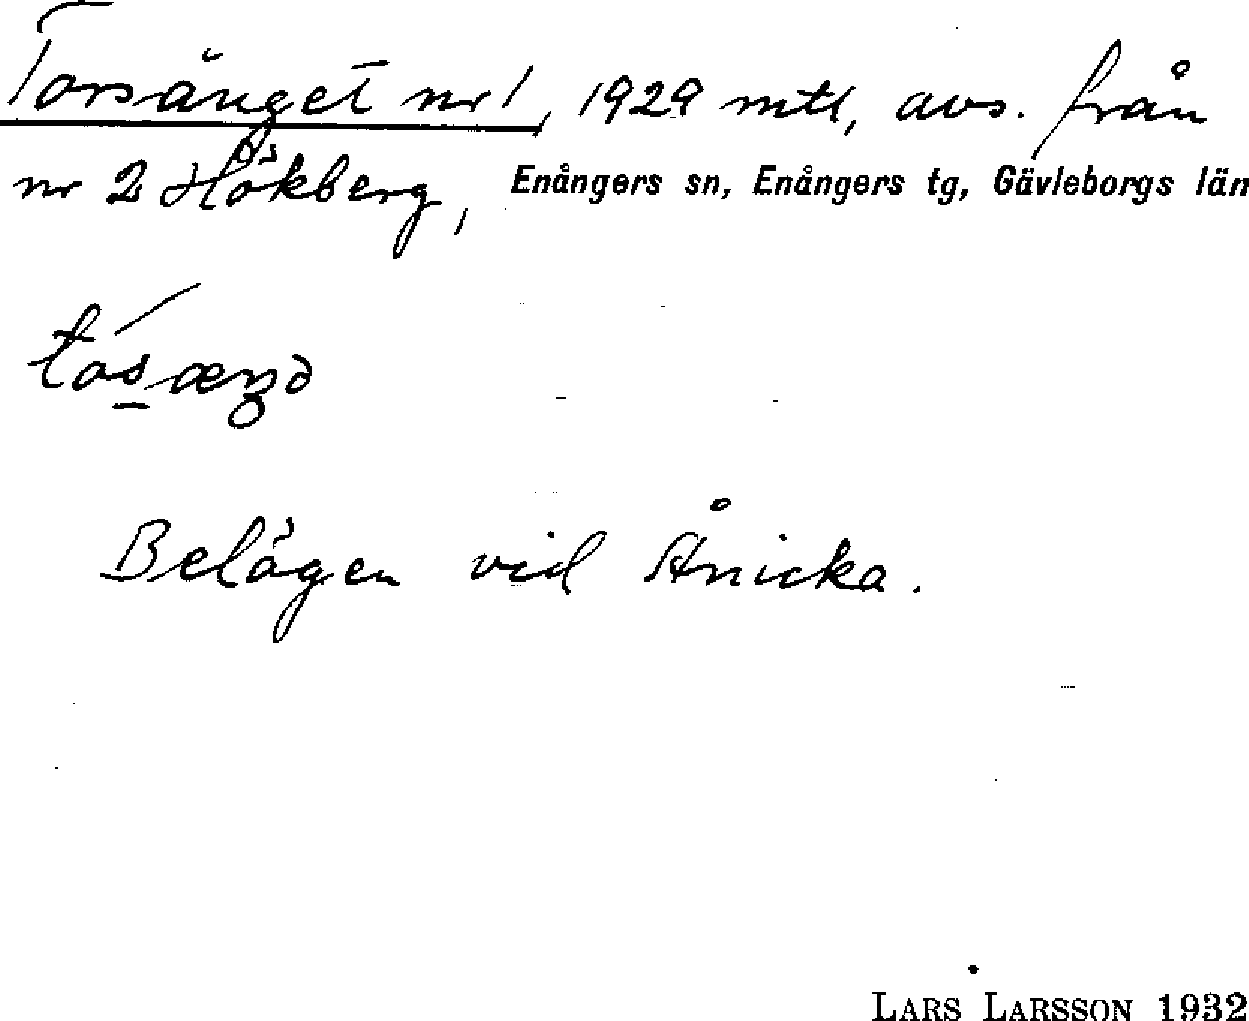 Torsänget nr 1, 1929 mtl, avs. från
nr 2 Hökberg, Enångers sn, Enångers tg, Gävleborgs län
Belägen vid Ånicka.
LARS LARSSON 1932